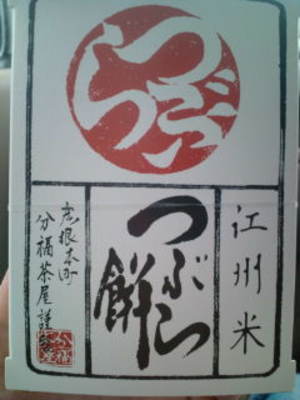 つぶら
江州米
つぶら
餅
彦根本町
分福茶屋謹製